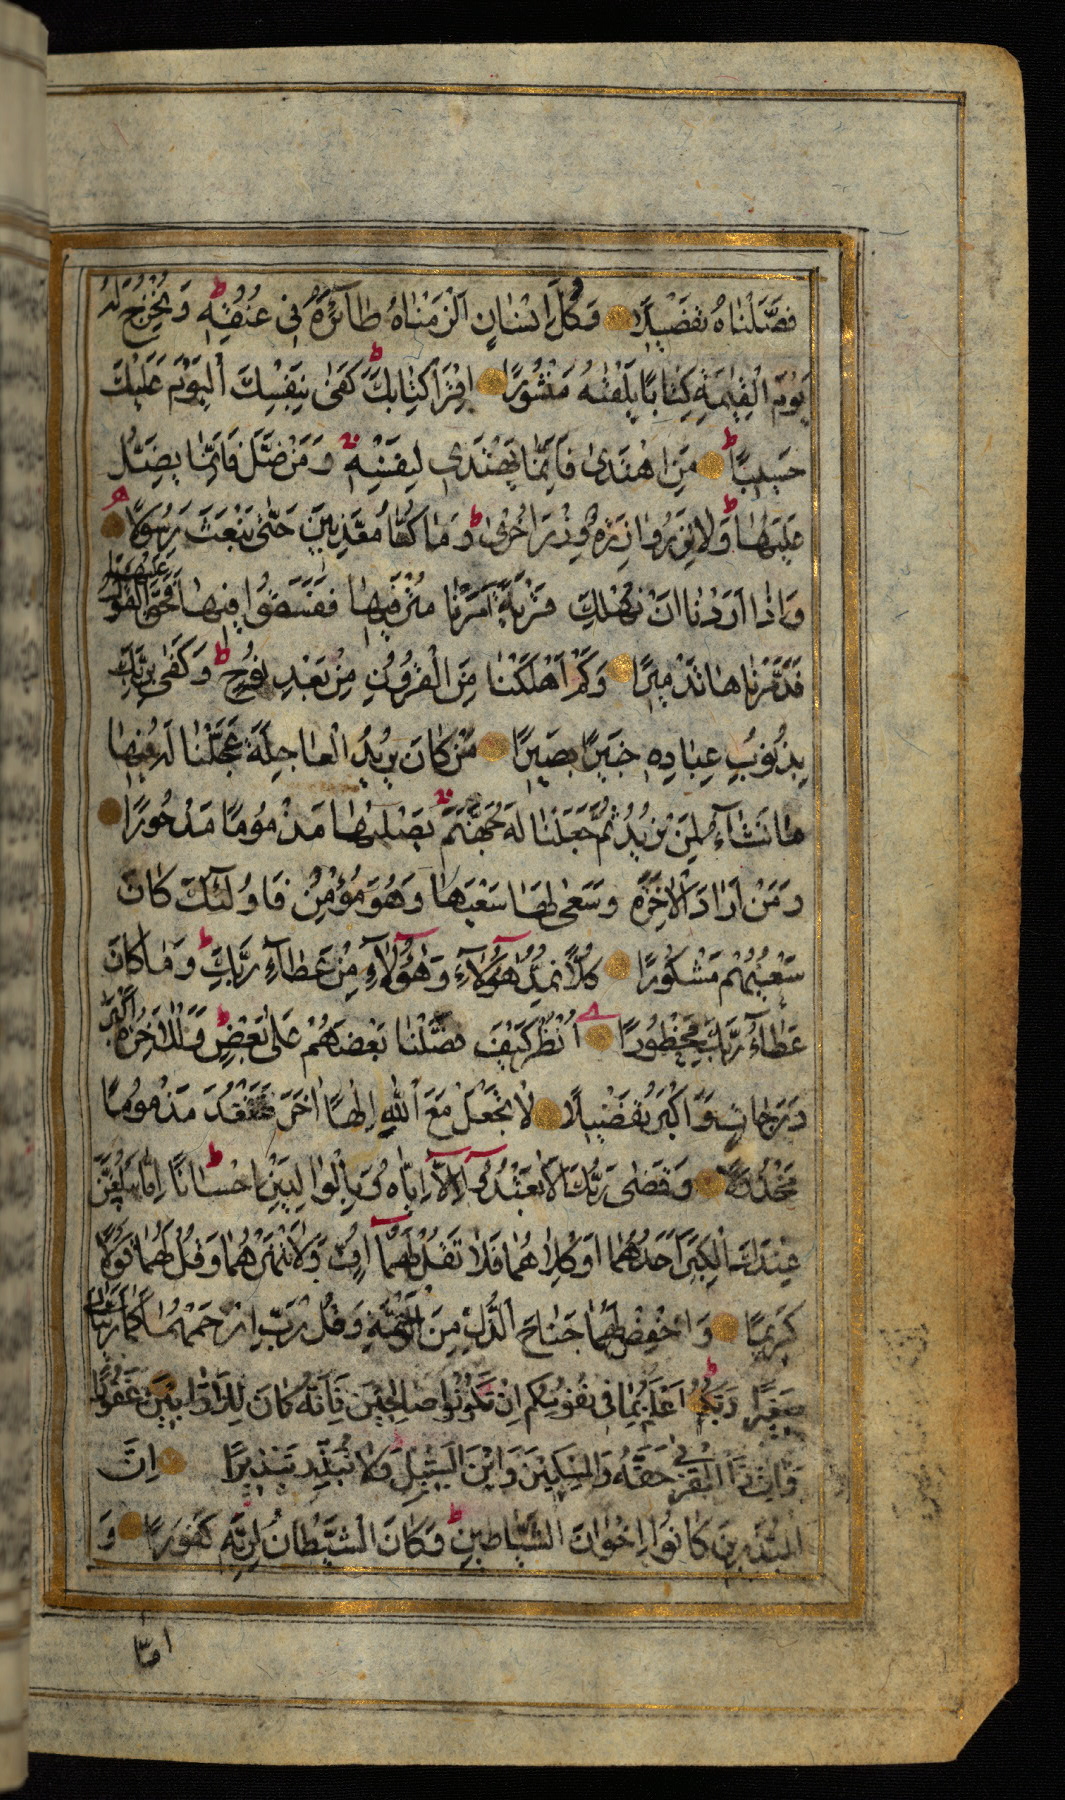 فَصَّلْنَاهُ تَفْصِيلًا وَكُلَّ إِنْسَانٍ أَلْزَمْنَاهُ طَآئِرَهُ فِي عُنُقِهِ ط وَنُخْرِجُ لَهُ
يَوْمَ الْقِيٰمَةِ كِتَابًا يَلْقٰىهُ مَنْشُورًا اِقْرَأْ كِتَابَكَ ط كَفٰى بِنَفْسِكَ الْيَوْمَ عَلَيْكَ
حَسِيبًا ط مَنِ اهْتَدٰى فَاِنَّمَا يَهْتَدِي لِنَفْسِهِ وَمَنْ ضَلَّ فَاِنَّمَا يَضِلُّ
عَلَيْهَا ط وَلَا تَزِرُ وَازِرَةٌ وِزْرَ اُخْرٰى ط وَمَا كُنَّا مُعَذِّبِينَ حَتّٰى نَبْعَثَ رَسُولًا
وَاِذَا اَرَدْنَا اَنْ نُهْلِكَ قَرْيَةً اَمَرْنَا مُتْرَفِيهَا فَفَسَقُوا فِيهَا فَحَقَّ عَلَيْهَا الْقَوْلُ
فَدَمَّرْنَاهَا تَدْمِيرًا وَكَمْ اَهْلَكْنَا مِنَ الْقُرُونِ مِنْ بَعْدِ نُوحٍ ط وَكَفٰى بِرَبِّكَ
بِذُنُوبِ عِبَادِهِ خَبِيرًا بَصِيرًا مَنْ كَانَ يُرِيدُ الْعَاجِلَةَ عَجَّلْنَا لَهُ فِيهَا
مَا نَشَآءُ لِمَنْ نُرِيدُ ثُمَّ جَعَلْنَا لَهُ جَهَنَّمَ يَصْلٰيهَا مَذْمُومًا مَدْحُورًا
وَمَنْ اَرَادَ الْاٰخِرَةَ وَسَعٰى لَهَا سَعْيَهَا وَهُوَ مُؤْمِنٌ فَاُولٰئِكَ كَانَ
سَعْيُهُمْ مَشْكُورًا كُلًّا نُمِدُّ هٰؤُلَآءِ وَهٰؤُلَآءِ مِنْ عَطَآءِ رَبِّكَ ط وَمَا كَانَ
عَطَآءُ رَبِّكَ مَحْظُورًا اُنْظُرْ كَيْفَ فَضَّلْنَا بَعْضَهُمْ عَلٰى بَعْضٍ ط وَلَلْاٰخِرَةُ اَكْبَرُ
دَرَجَاتٍ وَاَكْبَرُ تَفْضِيلًا لَا تَجْعَلْ مَعَ اللّٰهِ اِلٰهًا اٰخَرَ فَتَقْعُدَ مَذْمُومًا
مَخْذُولًا وَقَضٰى رَبُّكَ اَلَّا تَعْبُدُوآ اِلَّآ اِيَّاهُ وَبِالْوَالِدَيْنِ اِحْسَانًا ط اِمَّا يَبْلُغَنَّ
عِنْدَكَ الْكِبَرَ اَحَدُهُمَا اَوْ كِلَاهُمَا فَلَا تَقُلْ لَهُمَآ اُفٍّ وَلَا تَنْهَرْهُمَا وَقُلْ لَهُمَا قَوْلًا
كَرِيمًا وَاخْفِضْ لَهُمَا جَنَاحَ الذُّلِّ مِنَ الرَّحْمَةِ وَقُلْ رَبِّ ارْحَمْهُمَا كَمَا رَبَّيَانِي
صَغِيرًا رَبُّكُمْ اَعْلَمُ بِمَا فِي نُفُوسِكُمْ ط اِنْ تَكُونُوا صَالِحِينَ فَاِنَّهُ كَانَ لِلْاَوَّابِينَ غَفُورًا
وَاٰتِ ذَا الْقُرْبٰى حَقَّهُ وَالْمِسْكِينَ وَابْنَ السَّبِيلِ وَلَا تُبَذِّرْ تَبْذِيرًا اِنَّ
الْمُبَذِّرِينَ كَانُوا اِخْوَانَ الشَّيَاطِينِ ط وَكَانَ الشَّيْطَانُ لِرَبِّهِ كَفُورًا وَ
امّا